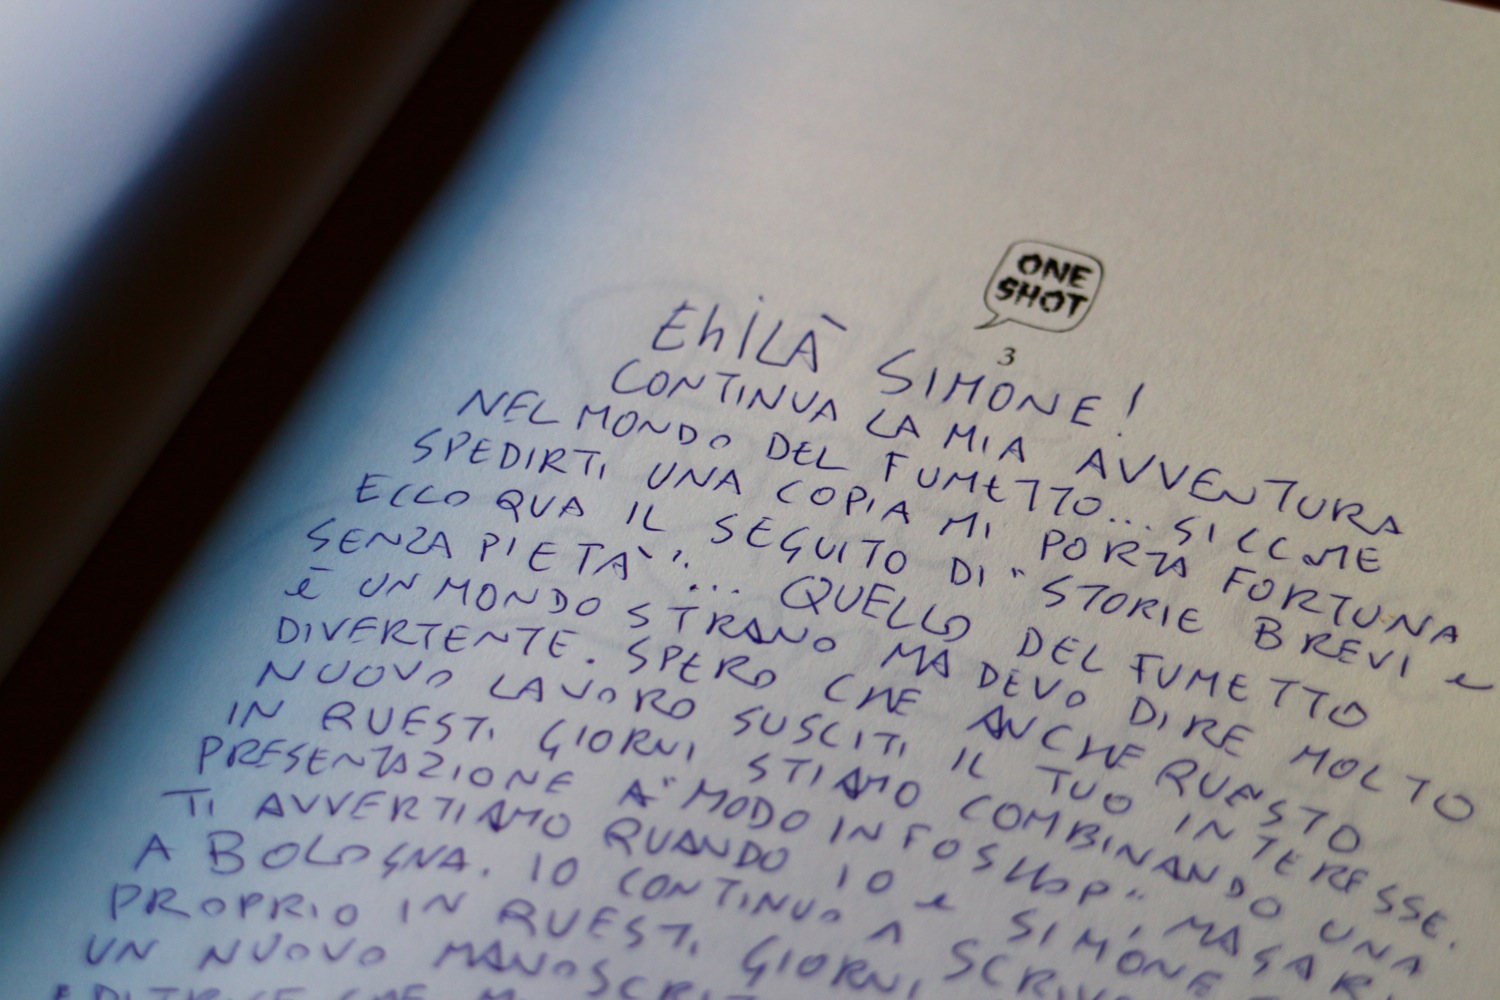 ONE
SHOT
3
EHILÀ SIMONE!
CONTINUA LA MIA AVVENTURA
NEL MONDO DEL FUMETTO... SICCOME
SPEDIRTI UNA COPIA MI PORTA FORTUNA
ECCO QUA IL SEGUITO DI "STORIE BREVI e
SENZA PIETÀ"... QUELLO DEL FUMETTO
È UN MONDO STRANO MA DEVO DIRE MOLTO
DIVERTENTE. SPERO CHE ANCHE QUESTO
NUOVO LAVORO SUSCITI IL TUO INTERESSE.
IN QUESTI GIORNI STIAMO COMBINANDO UNA
PRESENTAZIONE A "MODO INFOSHOP", MAGARI
TI AVVERTIAMO QUANDO IO e SIMONE
A BOLOGNA. IO CONTINUO A
PROPRIO IN QUESTI GIORNI
UN NUOVO